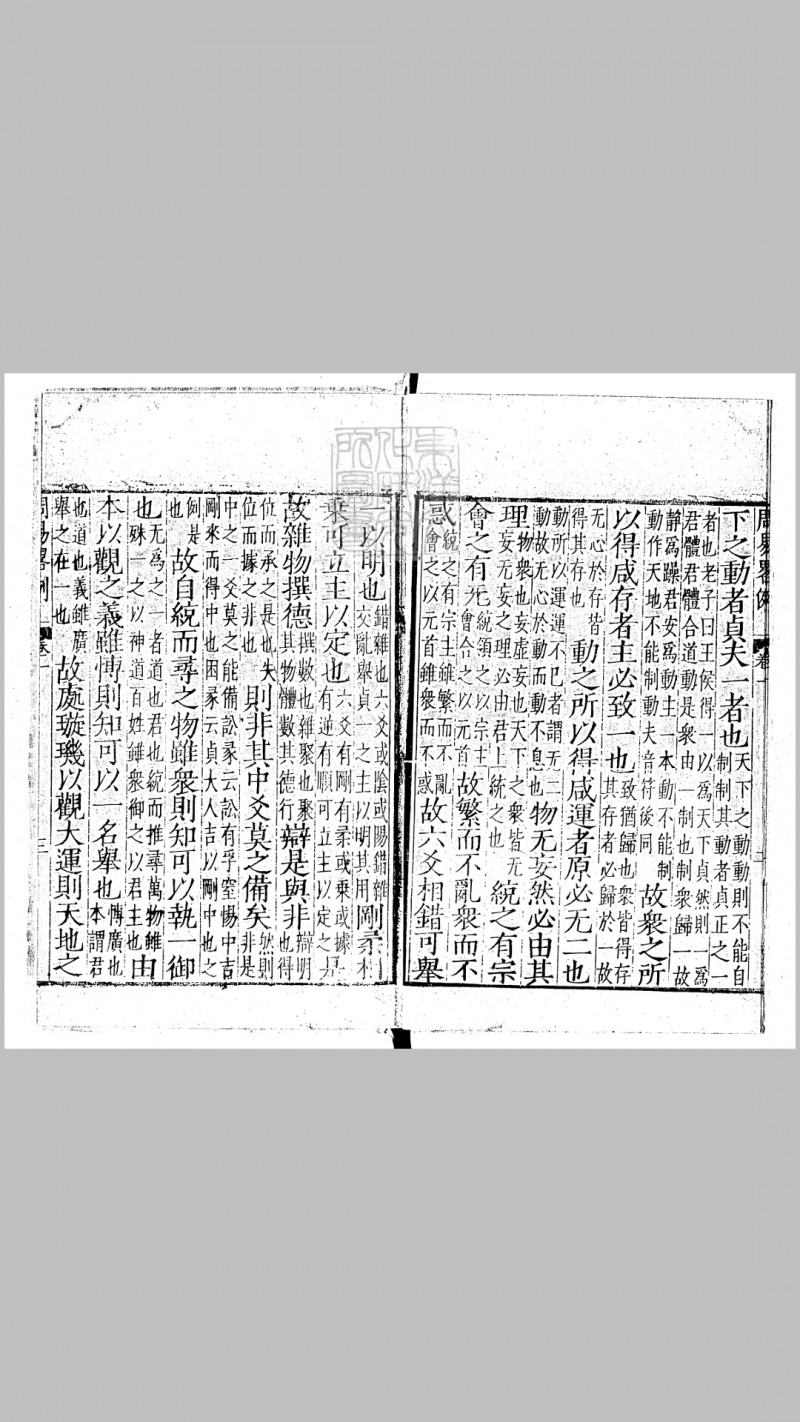 周易畧例 卷一 二
下之動者貞夫一者也天下之動動則不能自
制制其動者貞正之一
者也老子曰王侯得一以爲天下貞然則一爲
君體君體合道動是衆由一制也制衆歸一故
靜爲躁君安爲動主一本動不能制
動作天地不能制動夫音符後同
故衆之所
以得咸存者主必致一也致猶歸也衆皆得存
其存者必歸於一故
无心於存皆
得其存也
動之所以得咸運者原必无二也
動所以運運不已者謂无二
動故无心於動而動不息也
物无妄然必由其
理物衆也妄虚妄也天下之衆皆无
妄无妄之理必由君上統之也
統之有宗
會之有元統領之以宗主
會合之以元首
故繁而不亂衆而不
惑統之有宗主雖繁而不亂
會之以元首雖衆而不惑
故六爻相錯可舉
一以明也錯雜也六爻或陰或陽錯雜
交亂舉貞一之主以明其用
剛柔相
乘可立主以定也六爻有剛有柔或乘或據
有逆有順可立主以定之
故雜物撰德撰數也雜聚也聚
其物體數其德行
辯是與非辯明
也得
位而承之是也失
位而據之非也
則非其中爻莫之備矣然則
非是
中之一爻莫之能備訟彖云訟有孚窒惕中吉
剛來而得中也困彖云貞大人吉以剛中也之
例是
也
故自統而尋之物雖衆則知可以執一御
也无爲之一者道也君也統而推尋萬物雖
殊一之以神道百姓雖衆御之以君主也
由
本以觀之義雖愽則知可以一名舉也愽廣也
本謂君
也道也義雖廣
舉之在一也
故處璇璣以觀大運則天地之
周易畧例 卷一 三